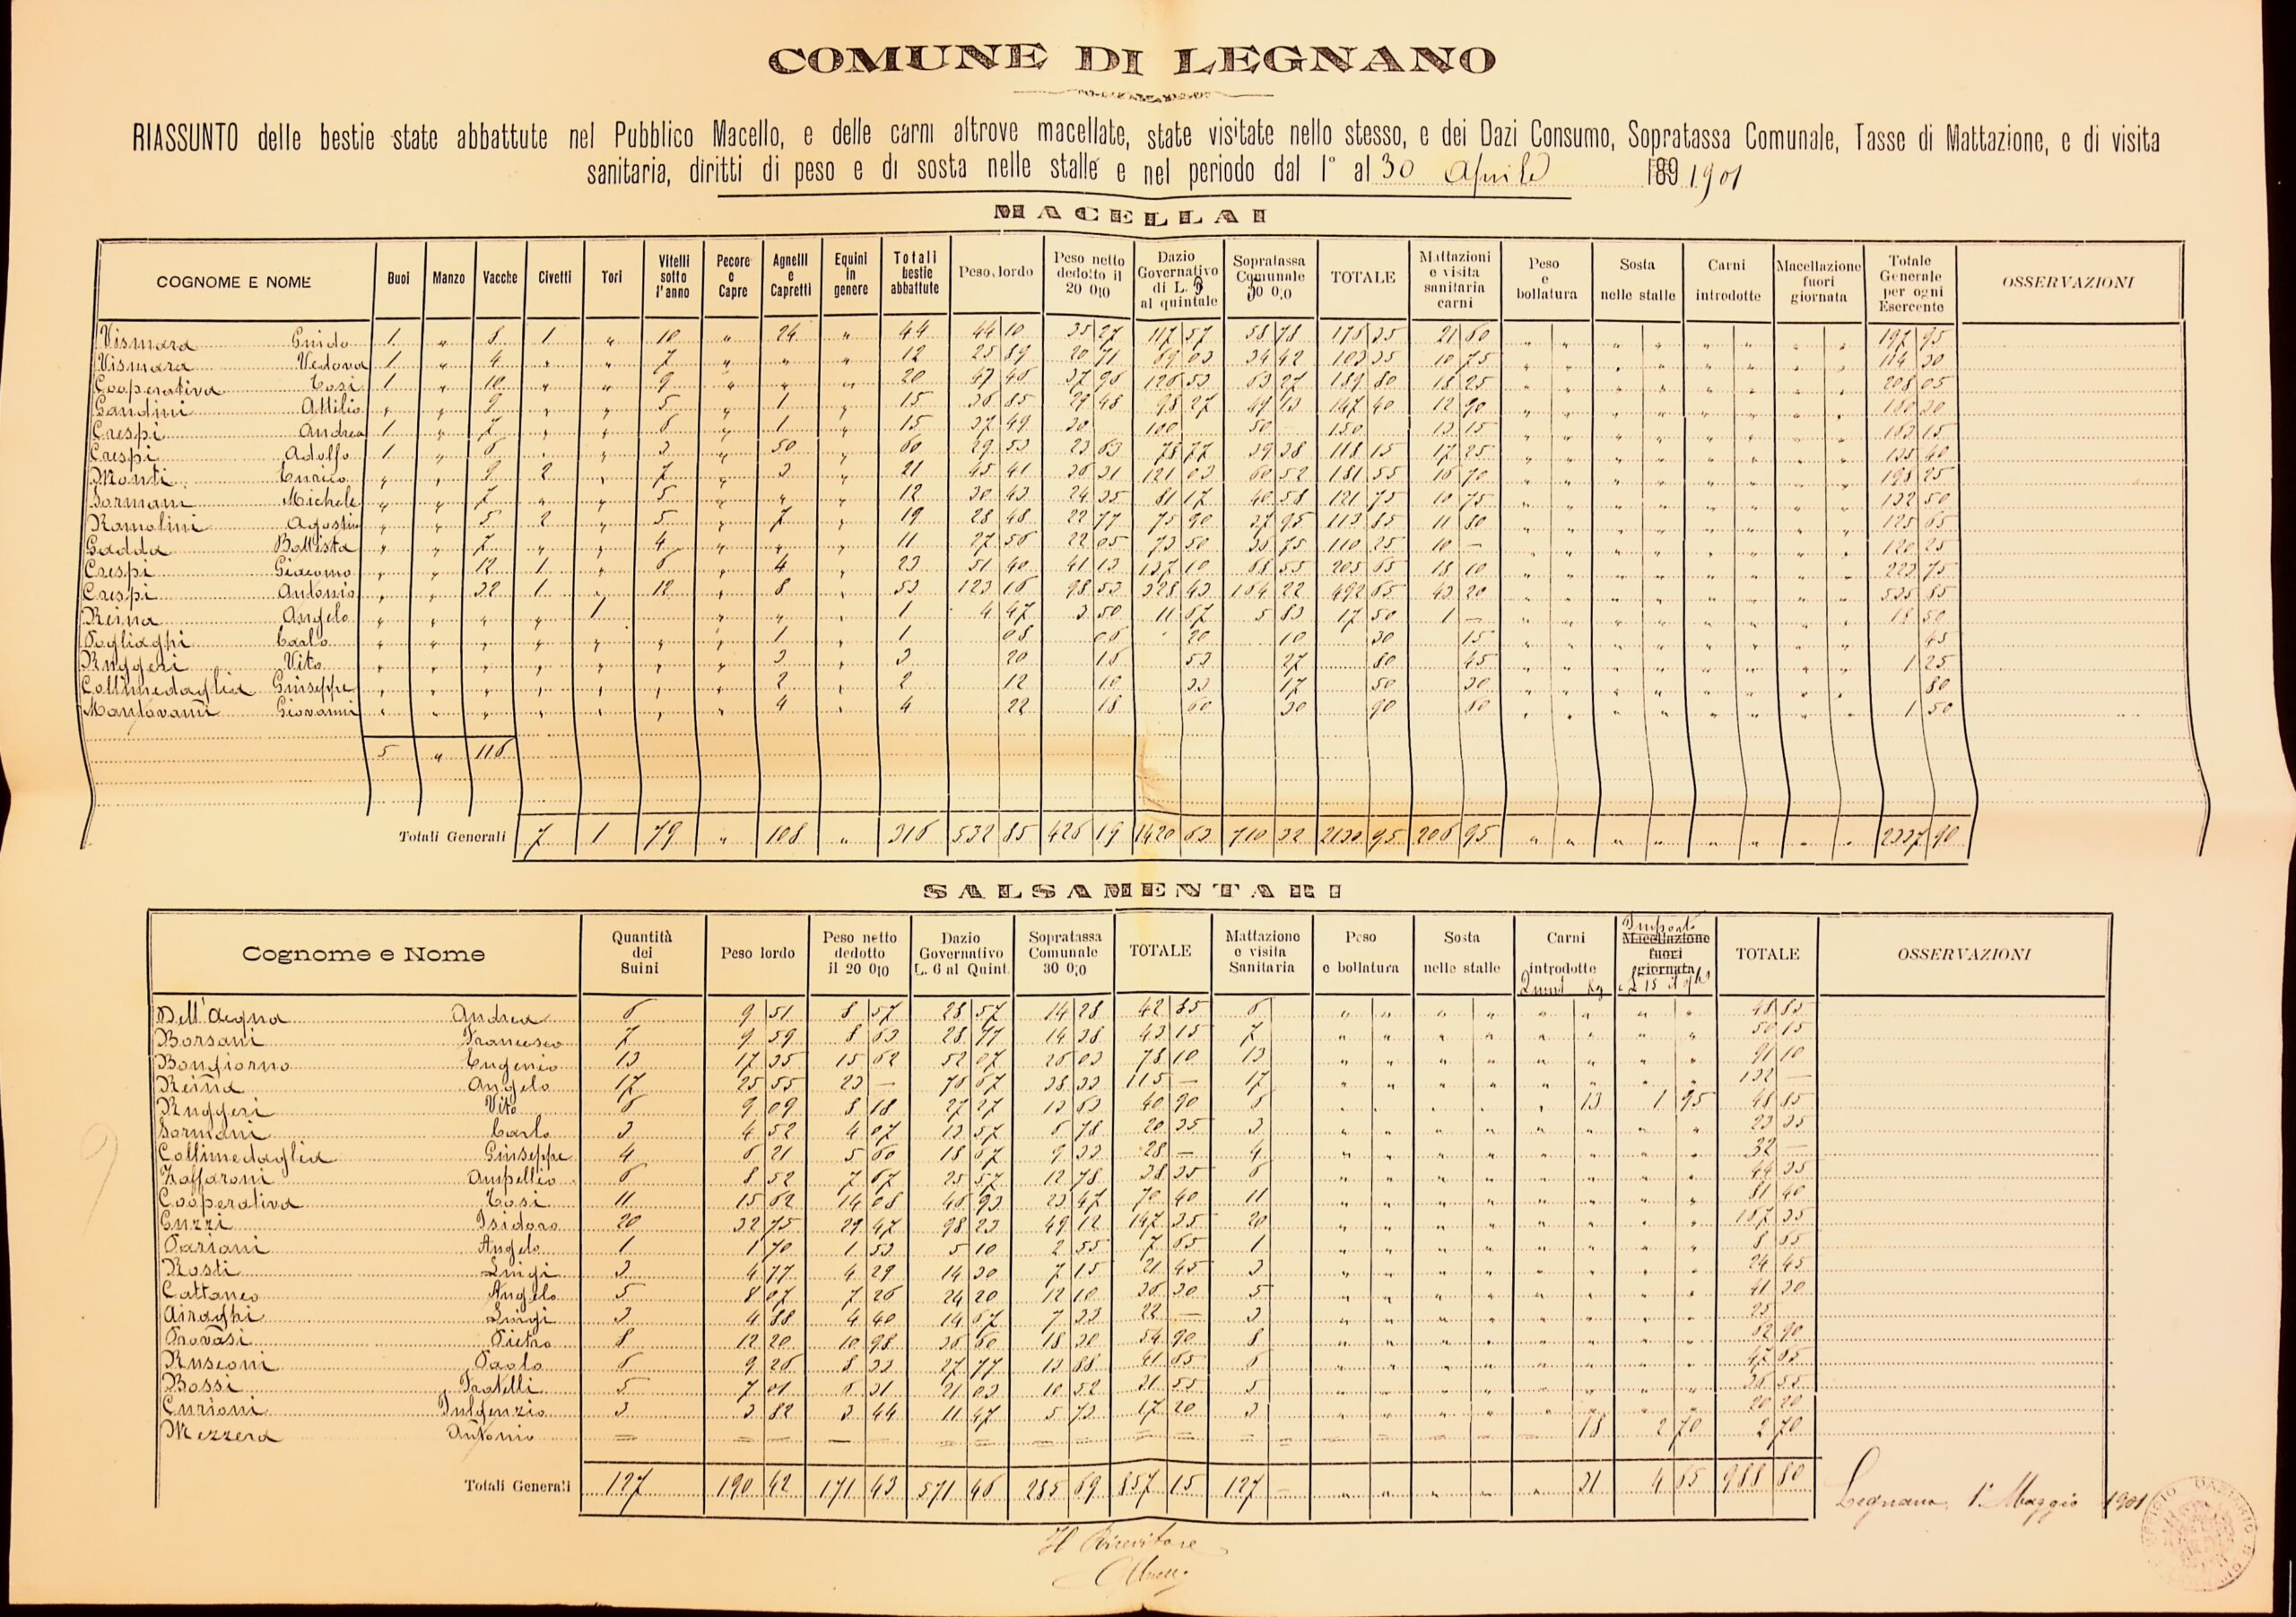 COMUNE DI LEGNANO
RIASSUNTO delle bestie state abbattute nel Pubblico Macello, e delle carni altrove macellate, state visitate nello stesso, e dei Dazi Consumo, Sopratassa Comunale, Tasse di Mattazione, e di visita
sanitaria, diritti di peso e di sosta nelle stalle e nel periodo dal 1° al 30 Aprile 189 1901
MACELLAI
COGNOME E NOME Buoi Manzo Vacche Civetti Tori Vitelli sotto l'anno Pecore e Capre Agnelli e Capretti Equini in genere Totali bestie abbattute Peso lordo Peso netto dedotto il 20 0|0 Dazio Governativo di L. al quintale Sopratassa Comunale 30 0|0 TOTALE Mattazioni e visita sanitaria carni Peso e bollatura Sosta nelle stalle Carni introdotte Macellazione fuori giornata Totale Generale per ogni Esercente OSSERVAZIONI
Vismara Guido 1 " 8 1 " 10 " 24 " 44 44 10 35 27 117 57 58 78 176 35 21 60 197 95
Vismara Vedova 1 " 4 " " 7 " " " 12 25 89 20 71 69 03 34 42 103 35 10 75 114 30
Cooperativa Tosi 1 " 10 " " 9 " " " 20 47 46 37 96 126 53 63 27 189 80 18 25 208 05
Gandini Attilio " " 9 " " 5 " 1 " 15 36 85 29 48 98 27 49 13 147 40 12 90 160 30
Crespi Andrea 1 " 7 " " 6 " 1 " 15 37 49 30 100 50 150 13 15 163 15
Crespi Adolfo 1 " 6 " " 3 " 50 " 60 29 53 23 63 78 77 39 38 118 15 17 25 135 40
Monti Enrico " " 9 2 " 7 " 3 " 21 45 41 36 31 121 03 60 52 181 55 16 70 198 25
Sormani Michele " " 7 " " 5 " " " 12 30 43 24 35 81 17 40 58 121 75 10 75 132 50
Ramolini Agostino " " 5 2 " 5 " 7 " 19 28 48 22 77 75 90 37 95 113 85 11 80 125 65
Gadda Battista " " 7 " " 4 " " " 11 27 56 22 05 73 50 36 75 110 25 10 — 120 25
Crespi Giacomo " " 12 1 " 6 " 4 " 23 51 40 41 13 137 10 68 55 205 65 18 10 223 75
Crespi Antonio " " 32 1 " 12 " 8 " 53 123 16 98 53 328 43 164 22 492 65 43 20 535 85
Reina Angelo " " " " 1 " " " 1 4 47 3 50 11 67 5 83 17 50 1 — 18 50
Pogliaghi Carlo " " " " " " " 1 " 1 08 06 20 10 30 15 45
Ruggeri Vito " " " " " " " 3 " 3 20 16 53 27 80 45 1 25
Collimedaglia Giuseppe " " " " " " " 2 " 2 12 10 33 17 50 30 80
Mantovani Giovanni " " " " " " " 4 " 4 22 18 60 30 90 60 1 50
5 " 116
Totali Generali 7 1 79 " 108 " 316 532 85 426 19 1420 63 710 32 2130 95 206 95 2337 90
SALSAMENTARI
Cognome e Nome Quantità dei Suini Peso lordo Peso netto dedotto il 20 0|0 Dazio Governativo L. 6 al Quint. Sopratassa Comunale 30 0|0 TOTALE Mattazione e visita Sanitaria Peso e bollatura Sosta nelle stalle Carni introdotte Quint Kg Importo Macellazione fuori giornata TOTALE OSSERVAZIONI
Dell'Acqua Andrea 6 9 51 8 57 28 57 14 28 42 85 6 48 85
Borsani Francesco 7 9 59 8 63 28 77 14 38 43 15 7 50 15
Bongiorno Eugenio 13 17 35 15 62 52 07 26 03 78 10 13 91 10
Reina Angelo 17 25 55 23 — 76 67 38 33 115 — 17 132 —
Ruggeri Vito 6 9 09 8 18 27 27 13 63 40 90 6 13 1 95 48 85
Sormani Carlo 3 4 52 4 07 13 57 6 78 20 35 3 23 35
Collimedaglia Giuseppe 4 6 21 5 60 18 67 9 33 28 — 4 32 —
Zaffaroni Ampellio 6 8 52 7 67 25 57 12 78 38 35 6 44 35
Cooperativa Tosi 11 15 62 14 08 46 93 23 47 70 40 11 81 40
Guzzi Isidoro 20 32 75 29 47 98 23 49 12 147 35 20 167 35
Pariani Angelo 1 1 70 1 53 5 10 2 55 7 65 1 8 65
Rosti Luigi 3 4 77 4 29 14 30 7 15 21 45 3 24 45
Cattaneo Angelo 5 8 07 7 26 24 20 12 10 36 30 5 41 30
Airaghi Luigi 3 4 88 4 40 14 67 7 33 22 — 3 25
Provasi Pietro 8 12 20 10 98 36 60 18 30 54 90 8 62 90
Rusconi Paolo 6 9 26 8 33 27 77 13 88 41 65 6 47 65
Bossi Fratelli 5 7 01 6 31 21 03 10 52 31 55 5 36 55
Curioni Fulgenzio 3 3 82 3 44 11 47 5 73 17 20 3 20 20
Mezzera Antonio 18 2 70 2 70
Totali Generali 127 190 42 171 43 571 46 285 69 857 15 127 — 31 4 65 988 80
Legnano, 1° Maggio 1901
Il Ricevitore